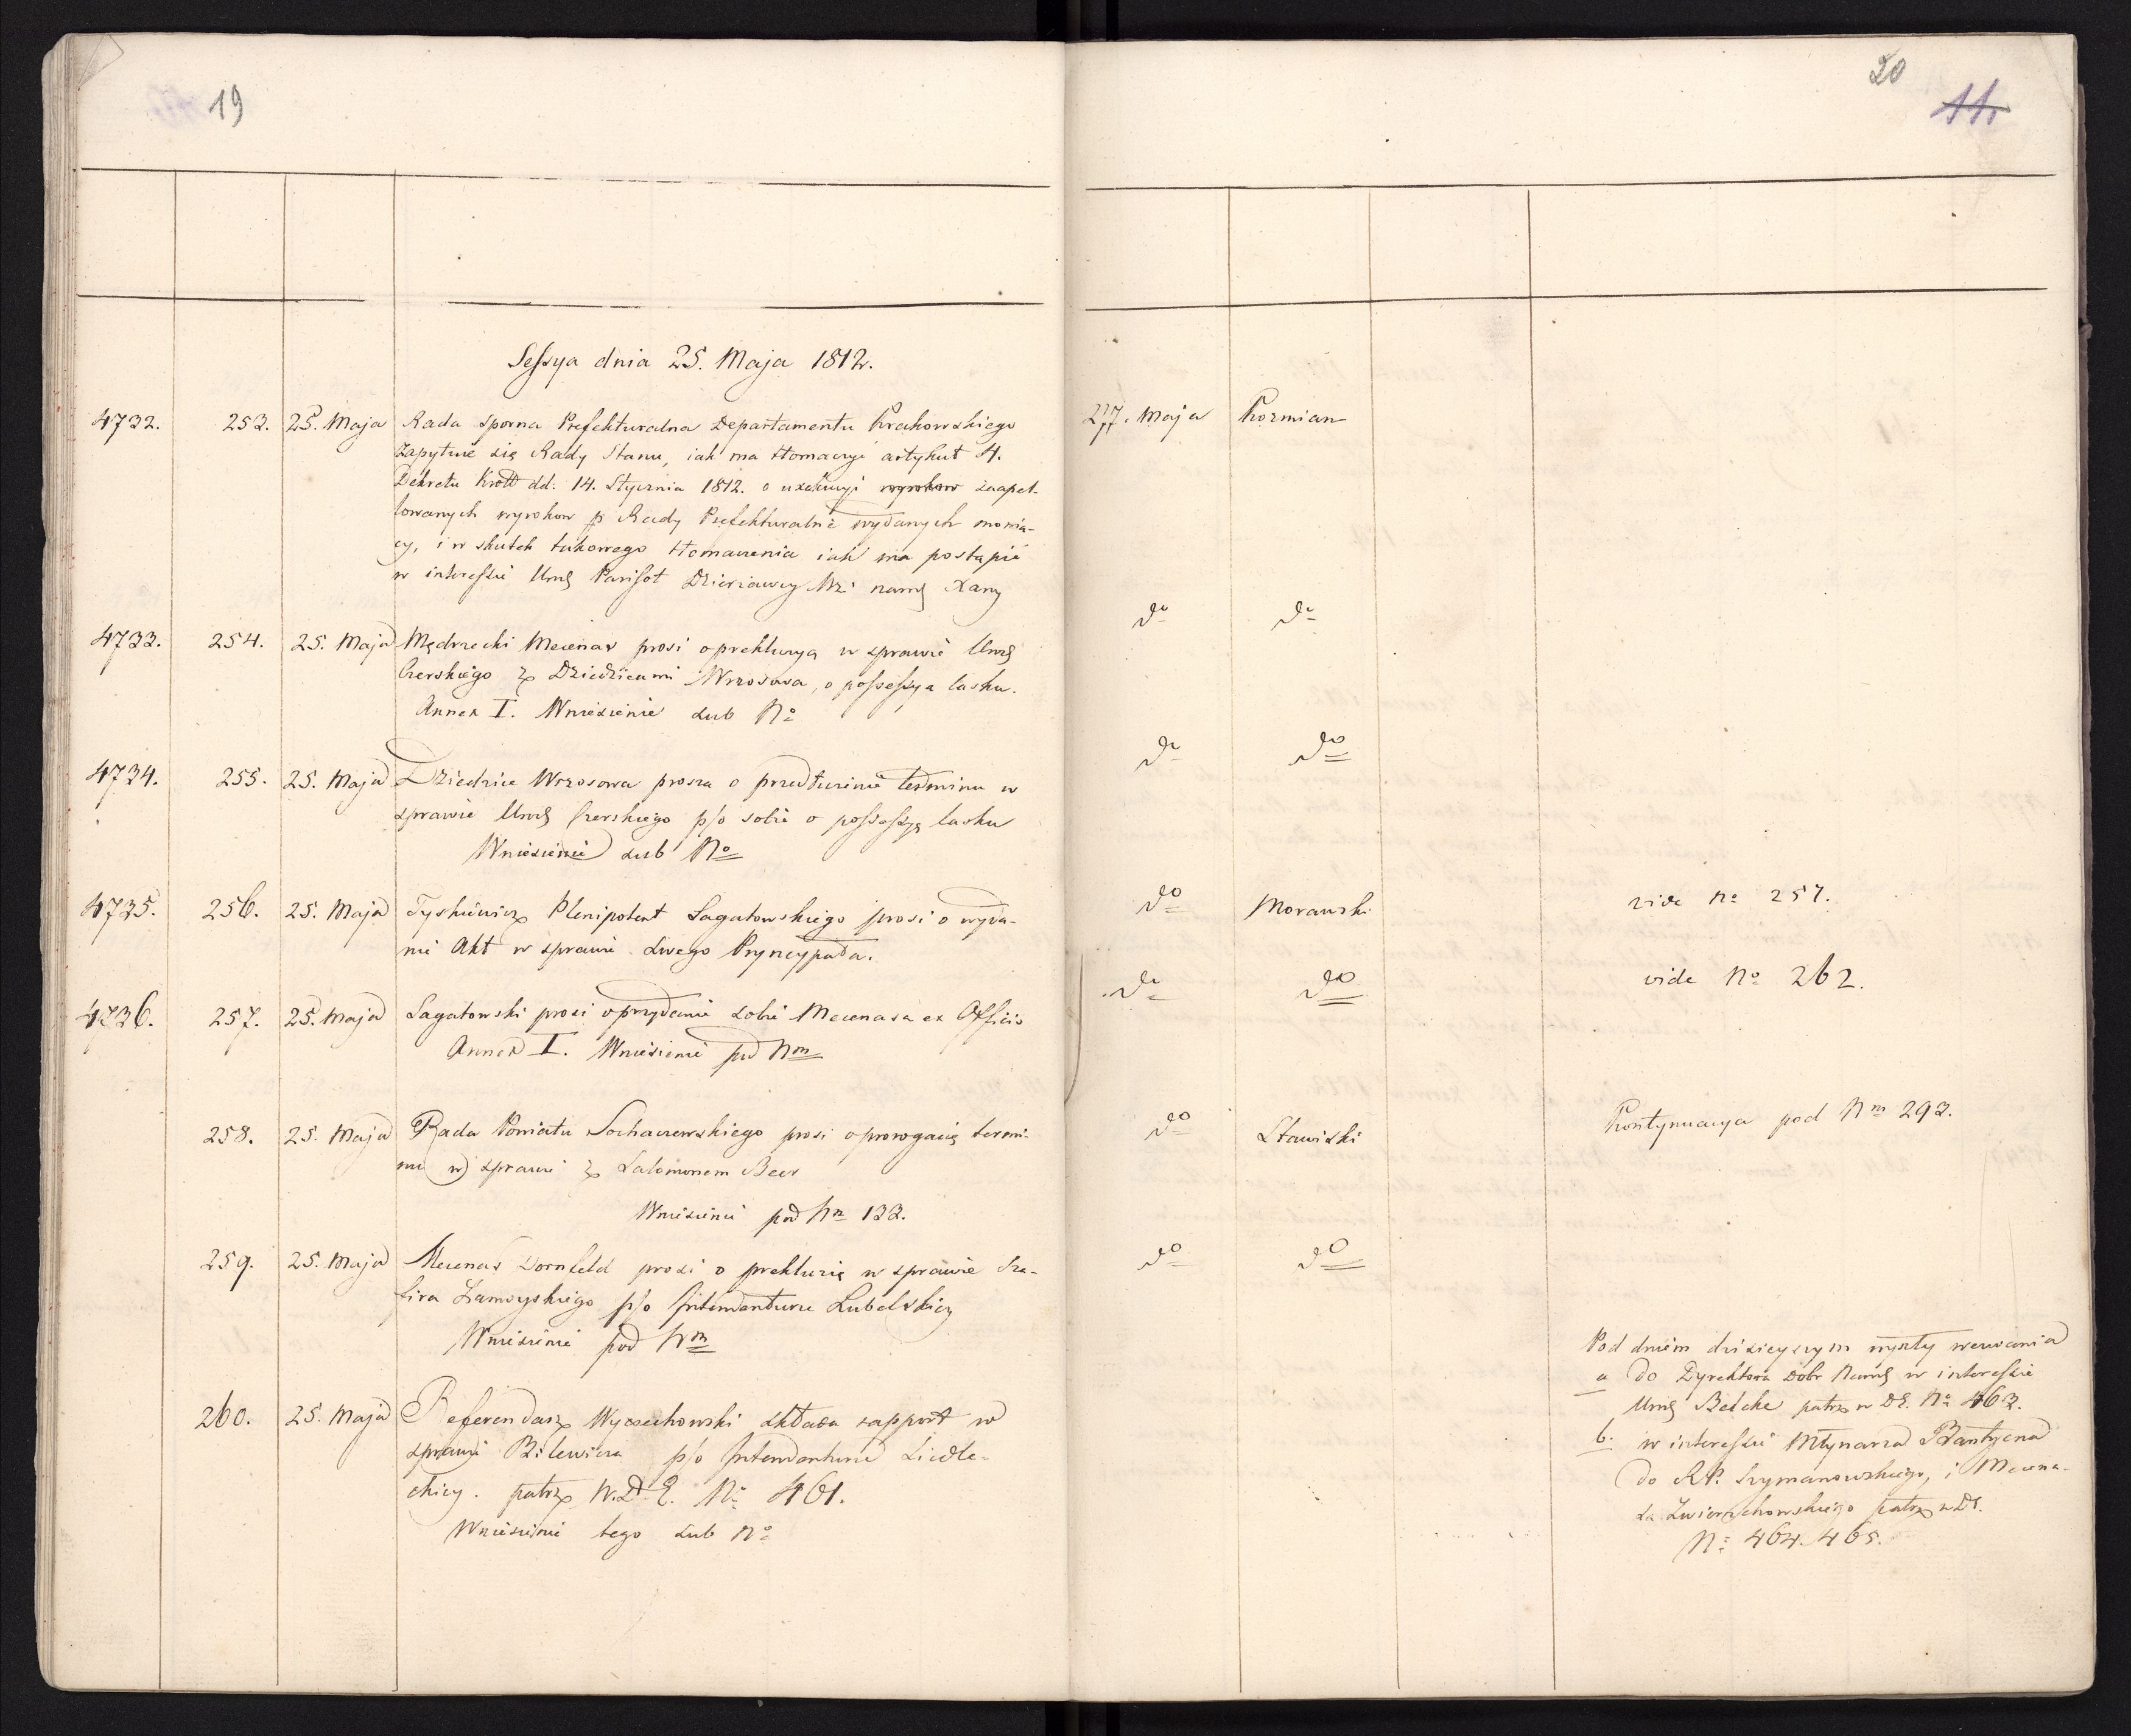 19
Sessya dnia 25. Maja 1812.
4732. 253. 25. Maja Rada sporna Prefekturalna Departamentu Krakowskiego
zapytuie się Rady Stanu, iak ma tłomaczyć artykuł 4.
Dekretu Król dd: 14. Stycznia 1812. o exekucyi wyrokow zaapel-
lowanych wyrokow p Rady Prefekturalne wydanych mowią-
cy, i w skutek takowego tłomaczenia iak ma postąpić
w interessie Ur Parisot Dzierżawcy
4733. 254. 25. Maja Mędrzecki Mecenas prosi o prekluzyą w sprawie Ur
Czerskiego z Dziedzicami Wrzosowa, o possessyą lasku.
Annex I. Wniesienie sub No
4734. 255. 25. Maja Dziedzice Wrzosowa proszą o przedłużenie terminu w
sprawie Ur Czerskiego p/o sobie o possessyą lasku
Wniesienie sub No
4735. 256. 25. Maja Tyszkiewicz Plenipotent Sagatowskiego prosi o wyda-
nie Akt w sprawie swego Pryncypała.
4736. 257. 25. Maja Sagatowski prosi o przydanie sobie Mecenasa ex Officio
Annex I. Wniesienie pod Nm
258. 25. Maja Rada Powiatu Sochaczewskiego prosi o prorogacią termi-
nu w sprawie z Salomonem Beer
Wniesienie pod Nm 133.
259. 25. Maja Mecenas Dornfeld prosi o prekluzią w sprawie Sza-
fira Zamoyskiego p/o Intendenturze Lubelskiey
Wniesienie pod Nm
260. 25. Maja Referendarz Wyczechowski składa rapport w
sprawie Bilewicza p/o Intendenturze Siedle-
ckiey. patrz W.D.E. No 461.
Wniesienie tego sub No
20
11.
27. Maja Kozmian
do do
do do
do Morawski vide No 257.
do do vide No 262.
do Stawiski Kontynuacya pod Nm 293.
do do
Pod dniem dzisieyszym wyszły wezwania
a do Dyrektora Dobr Narod w interessie
Ur Belcke patrz w DE. No 463.
b. w interessie Młynarza
do RP. Szymanowskiego, i Mecena-
sa Zwierzchowskiego patrz w DE.
No 464. 465.